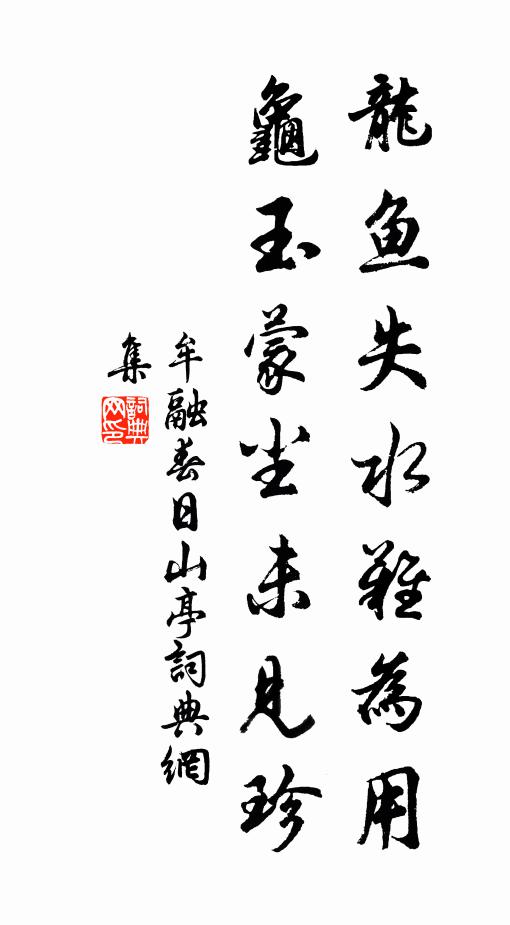 龍鱼失水難為用
龜玉蒙尘未見珍
牟融春日山亭詞典網
集
詞典网印